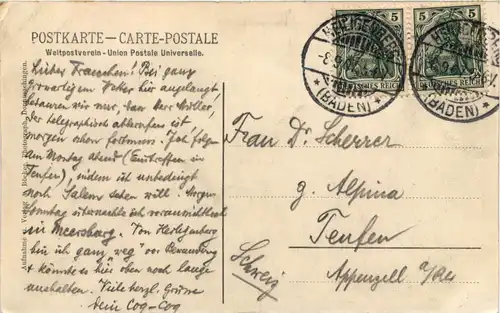 POSTKARTE — CARTE-POSTALE
Weltpostverein - Union Postale Universelle.
5 5
HEILIGENBERG
(BADEN)
DEUTSCHES REICH
(BADEN)
Liebes Frauchen! Bei ganz
Wetter hier angelangt
bedauern wir nur, dass der Müller,
der telegraphisch abberufen ist
morgen schon fort muss. Ich folge
am Montag Abend (Eintreffen in
Teufen), indem ich unbedingt
noch Salem sehen will. Morgen
Sonntag übernachte ich voraussichtlich
in Meersburg. Von Heiligenberg
bin ich ganz "weg" vor Bewunderung
& könnte es hier oben noch lange
aushalten. Viele herzl. Grüsse
dein Coq-Coq
Frau Dr Scherrer
z. Alpina
Teufen
Appenzell a/Rh
Schweiz